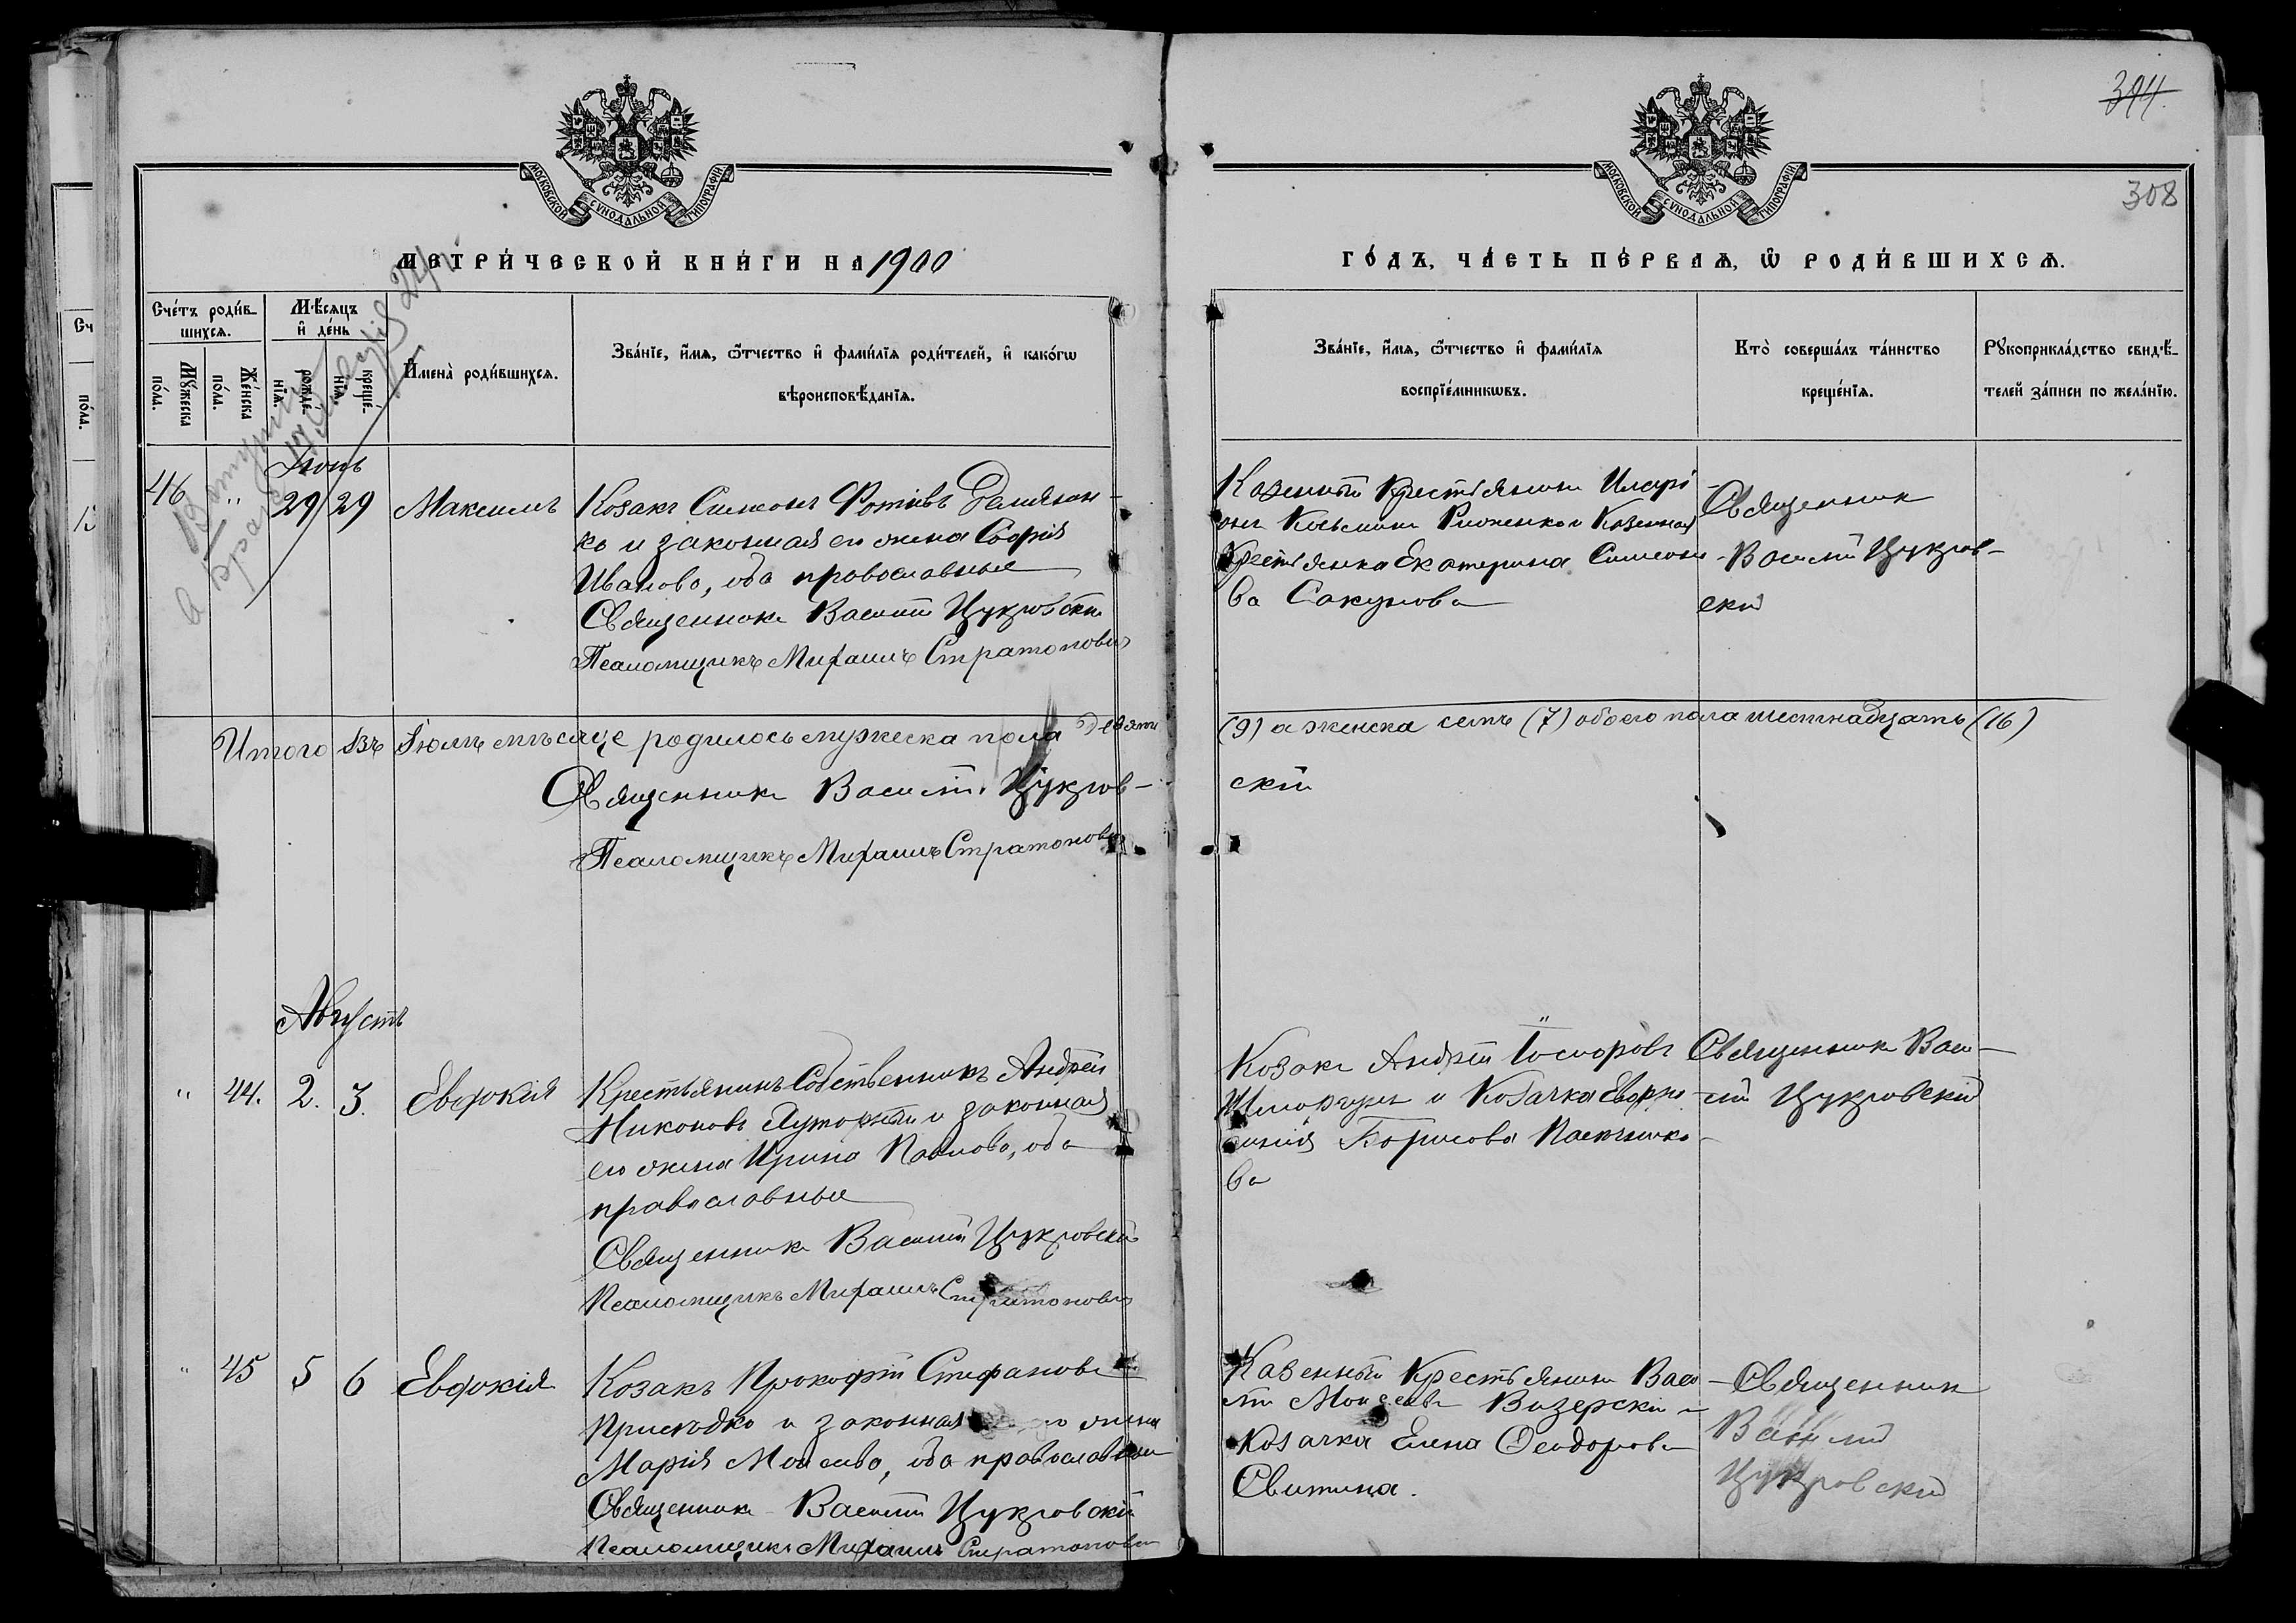 394.
308
МОСКОВСКОЙ СѴНОДАЛЬНОЙ ТИПОГРАФІИ
МОСКОВСКОЙ СѴНОДАЛЬНОЙ ТИПОГРАФІИ
МЕТРИ́ЧЕСКОЙ КНИ́ГИ НА 1900
ГО́ДЪ, ЧА́СТЬ ПЕ́РВАѦ, Ѿ РОДИ́ВШИХСѦ.
Сче́тъ роди́вшихсѧ.
Мꙋ́жеска по́ла.
Же́нска по́ла.
Мѣ́сѧцъ и҆ де́нь
рожде́нїѧ.
креще́нїѧ.
И҆мена̀ роди́вшихсѧ.
Зва́нїе, и҆́мѧ, ѻ҆́тчество и҆ фами́лїѧ роди́телей, и҆ како́гѡ
вѣроисповѣ́данїѧ.
Зва́нїе, и҆́мѧ, ѻ҆́тчество и҆ фами́лїѧ
воспрїе́мникѡвъ.
Кто̀ соверша́лъ та́инство
креще́нїѧ.
Рꙋкоприкла́дство свидѣ́-
телей за́писи по жела́нїю.
Іюль
46 " 29 29 Максимъ
Козакъ Симеонъ Фотіевъ Демянен-
ко и законная его жена Софія
Иванова, оба православные
Священникъ Василій Цукровскій
Псаломщикъ Михаилъ Стратоновичъ
Казенный Крестьянинъ Иларі-
онъ Косьминъ и Казенная
Крестьянка Екатерина Симеоно-
ва Сакунова
Священникъ
Василій Цукров-
скій
Итого въ Іюлѣ мѣсяце родилось мужеска пола девять (9) а женска семь (7) обоего пола шестнадцать (16)
Священникъ Василій Цукров-
скій
Псаломщикъ Михаилъ Стратоновичъ
Августъ
" 44. 2. 3. Евдокія
Крестьянинъ Собственникъ Андрей
Никоновъ и законная
его жена Ирина Павлова, оба
православные
Священникъ Василій Цукровскій
Псаломщикъ Михаилъ Стратоновичъ
Козакъ Андрей
и Козачка Евфро-
синія Борисова
ва
Священникъ Васи-
лій Цукровскій
" 45 5 6 Евдокія
Козакъ Прокофій Стефановъ
Присѣдко и законная его жена
Марія Моисеева, оба православные
Священникъ Василій Цукровскій
Псаломщикъ Михаилъ Стратоновичъ
Казенный Крестьянинъ Васи-
лій Моисеевъ Визерскій и
Козачка Елена Ѳеодорова
Свитина.
Священникъ
Василій
Цукровскій